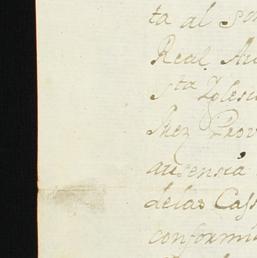 ta al S
Real. Au
Sta Iglesi
Juez Prov
ausensia
delas Cass
conformi